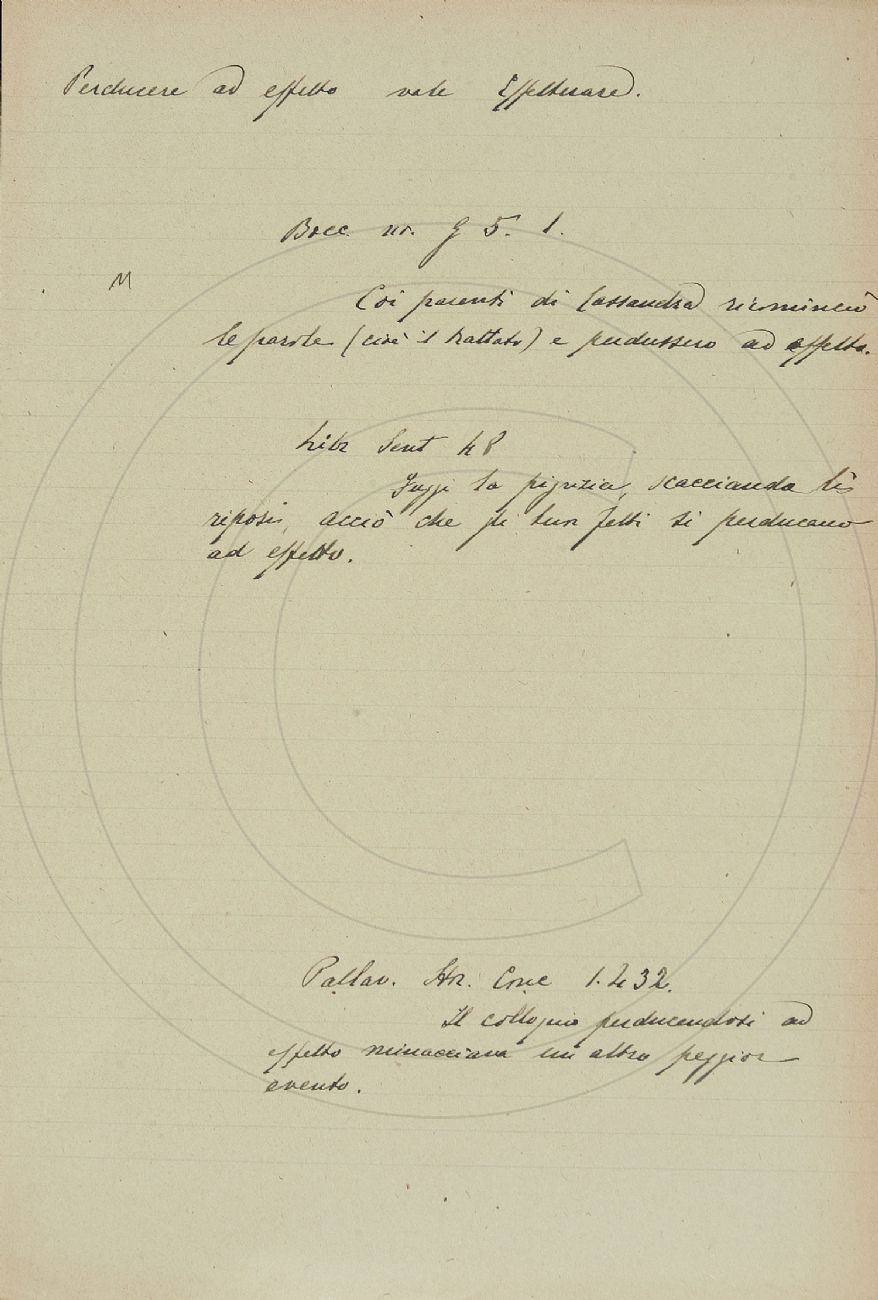 Perducere ad effetto vale Effettuare.
Bocc nov. g 5. 1.
M
Coi parenti di Cassandra ricominciò
le parole (cioè il trattato) e perdussero ad effetto.
Libr Sent 48
Fuggi la pigrizia, scacciando li
riposi, acciò che li tuoi fatti si perducano
ad effetto.
Pallav. Stor. Conc 1. 432.
Il colloquio perducendosi ad
effetto minacciava un altro peggior
evento.